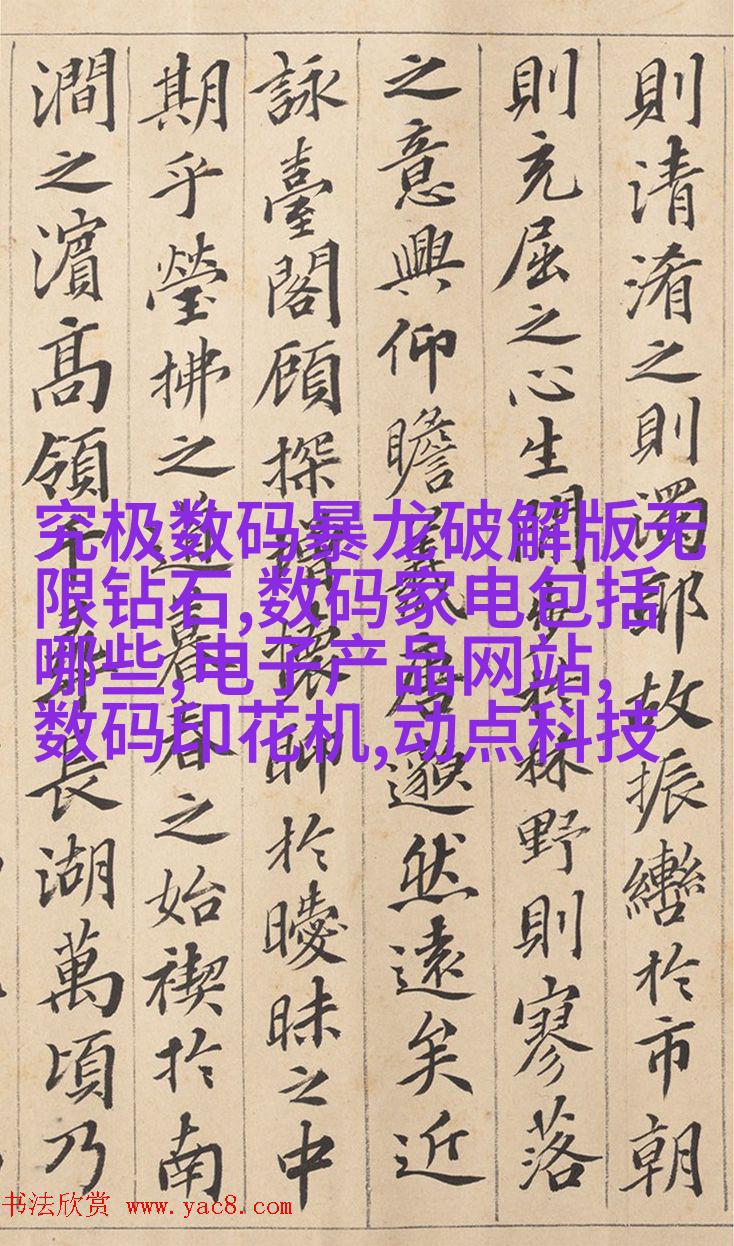 則清淆之則濁耶故振轡於市朝
則充屈之心生閒步於林野則寥落
之意興仰瞻羲唐邈然遠矣近
詠臺閣顧探增懷聊於曖昧之中
期乎瑩拂之道暮春之始禊於南
澗之濵髙領千尋長湖萬頃乃
究极数码暴龙破解版无
限钻石,数码家电包括
哪些,电子产品网站,
数码印花机,动点科技
书法欣赏 www.yac8.com